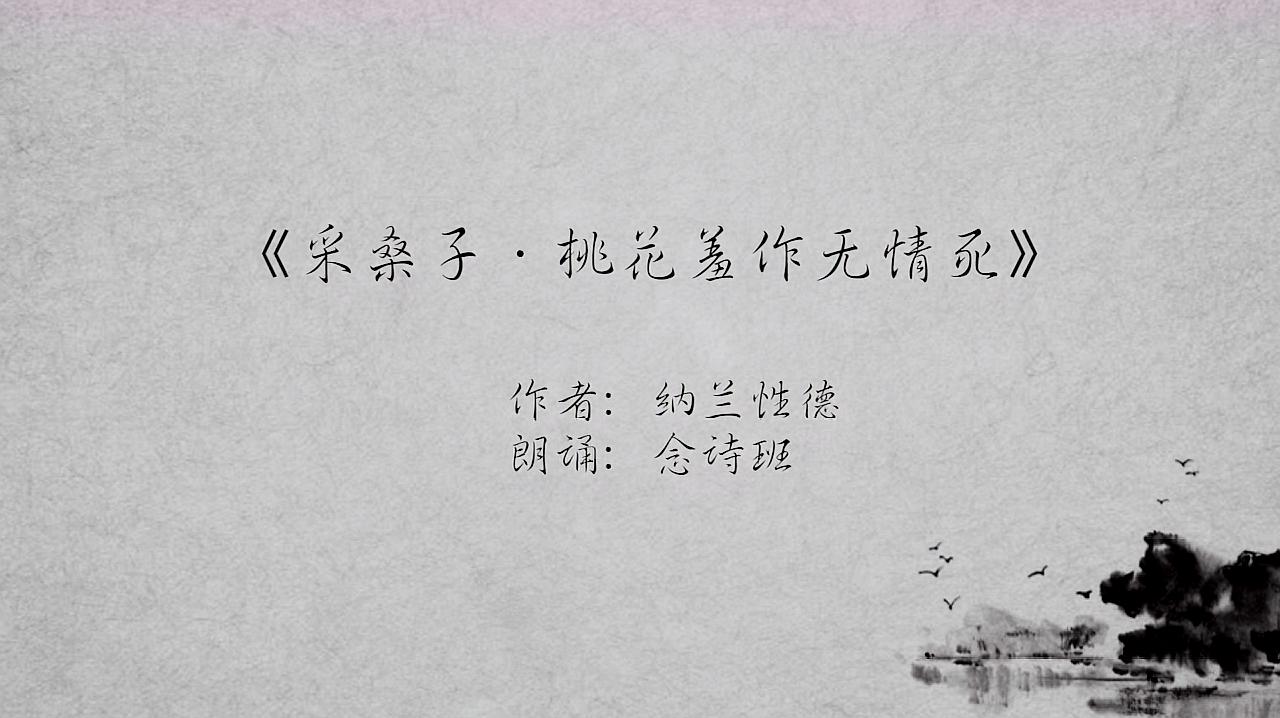 《采桑子·桃花羞作无情死》
作者：纳兰性德
朗诵：念诗班